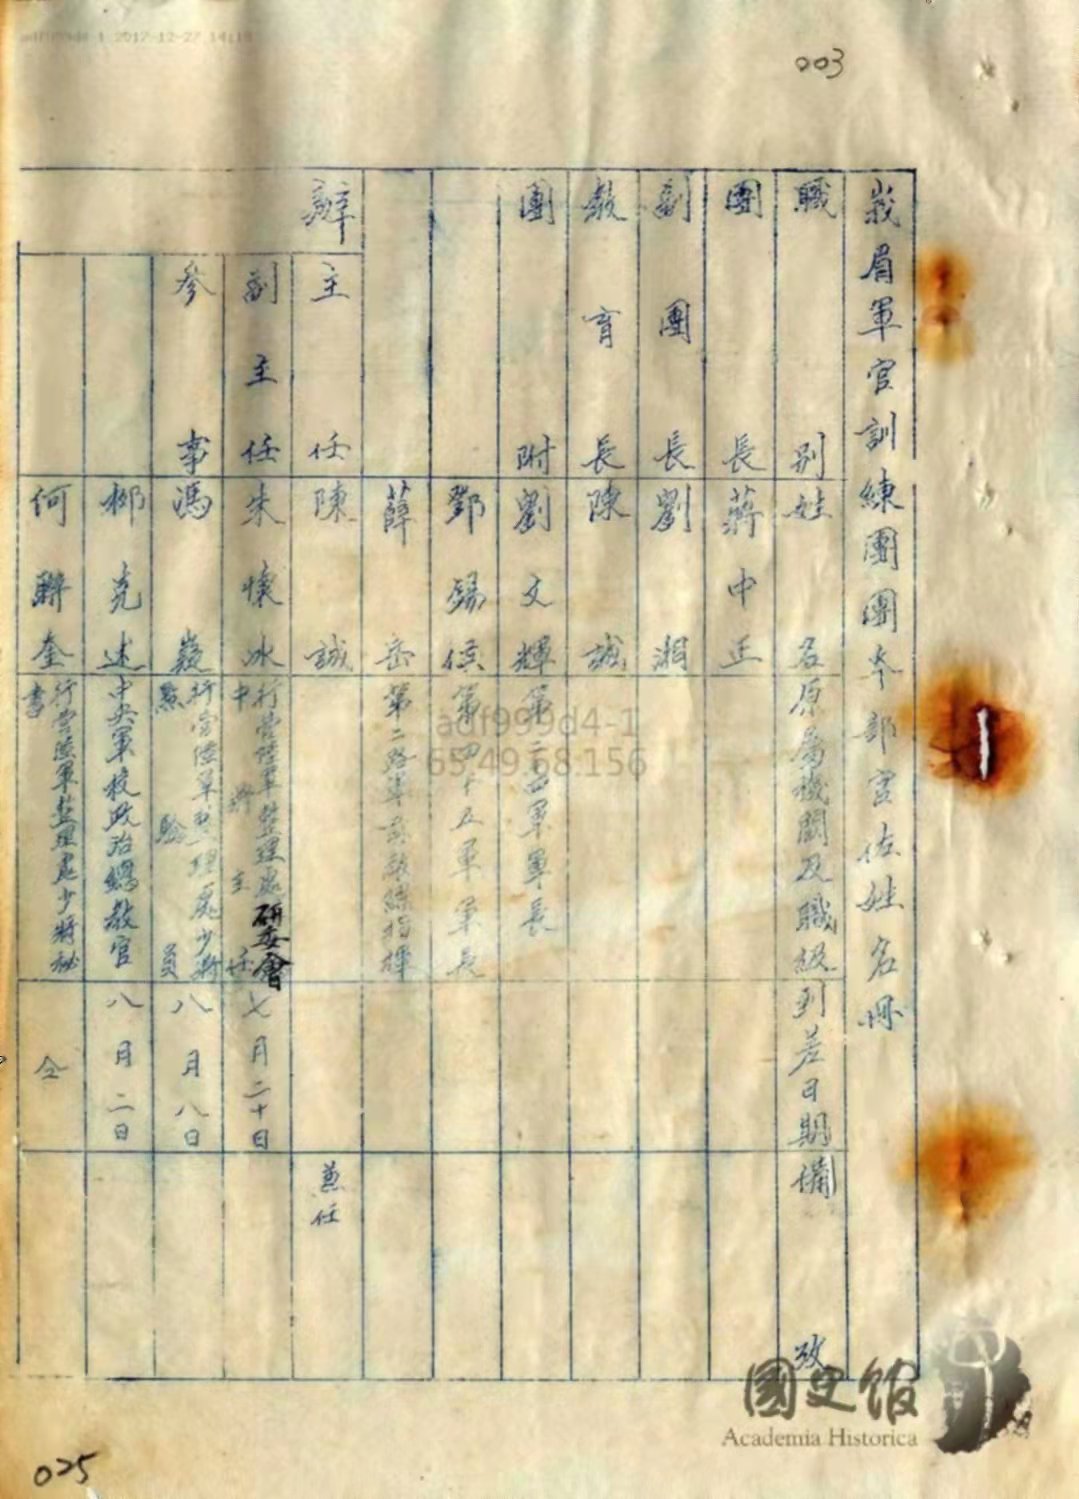 003
峩眉軍官訓練團團本部官佐姓名冊
職別 姓名 原屬機關及職級 到差日期 備攷
團長 蔣中正
副團長 劉湘
教育長 陳誠
團附 劉文輝 第二四軍軍長
鄧錫侯 第四十五軍軍長
薛岳 第二路軍前敵總指揮
辦
主任 陳誠 兼任
副主任 朱懷冰 行營陸軍整理處研委會中將主任 七月二十日
參事 馮嶷 行營陸軍整理處少將點驗員 八月八日
柳克述 中央軍校政治總教官 八月二日
何聯奎 行營陸軍整理處少將秘書 仝
adf999d4-1
65.49.68.156
adf999d4-1 2017-12-27 14:18
國史館
Academia Historica
025